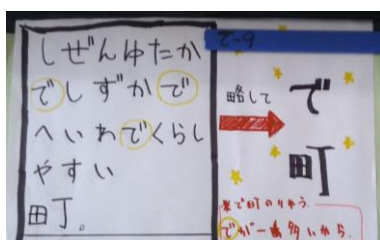 しぜんゆたか
でしずかで
へいわでくらし
やすい
田丁。
て-9
略して
で
町
※で町のりゆう.
でが一番多いから.